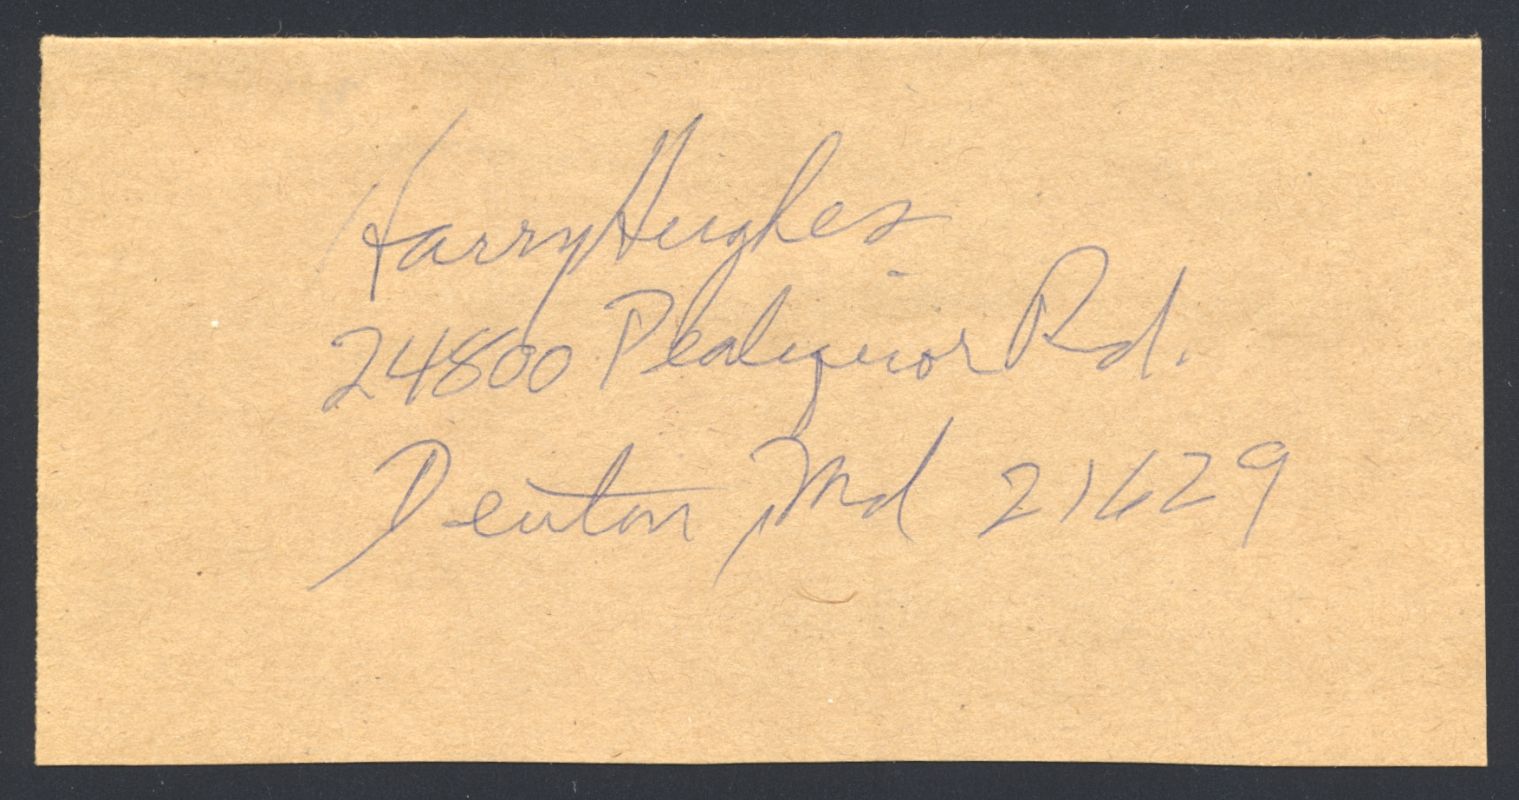 Harry Hughes
24800 Pealiquor Rd.
Denton, Md 21629